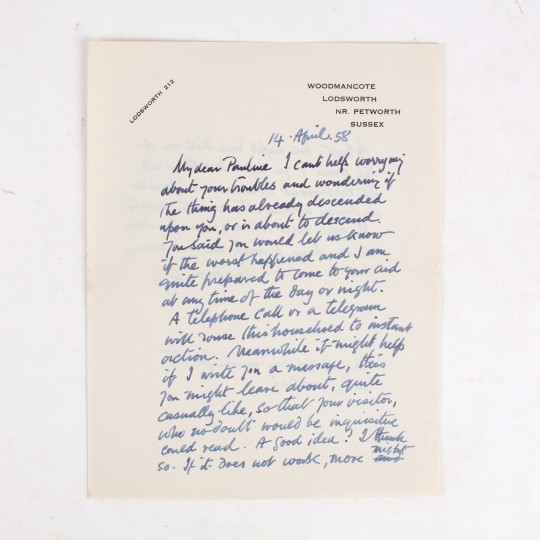 LODSWORTH 212
WOODMANCOTE
LODSWORTH
NR. PETWORTH
SUSSEX
14. April. 58
My dear Pauline I can't help worrying
about your troubles and wondering if
The thing has already descended
upon you, or is about to descend.
You said you would let us know
if the worst happened and I am
quite prepared to come to your aid
at any time of the day or night.
A telephone call or a telegram
will rouse this household to instant
action. Meanwhile it might help
if I write you a message, this
you might leave about, quite
casually like, so that your visitor,
who no doubt would be inquisitive
could read. A good idea? I think
so. If it does not work, more might